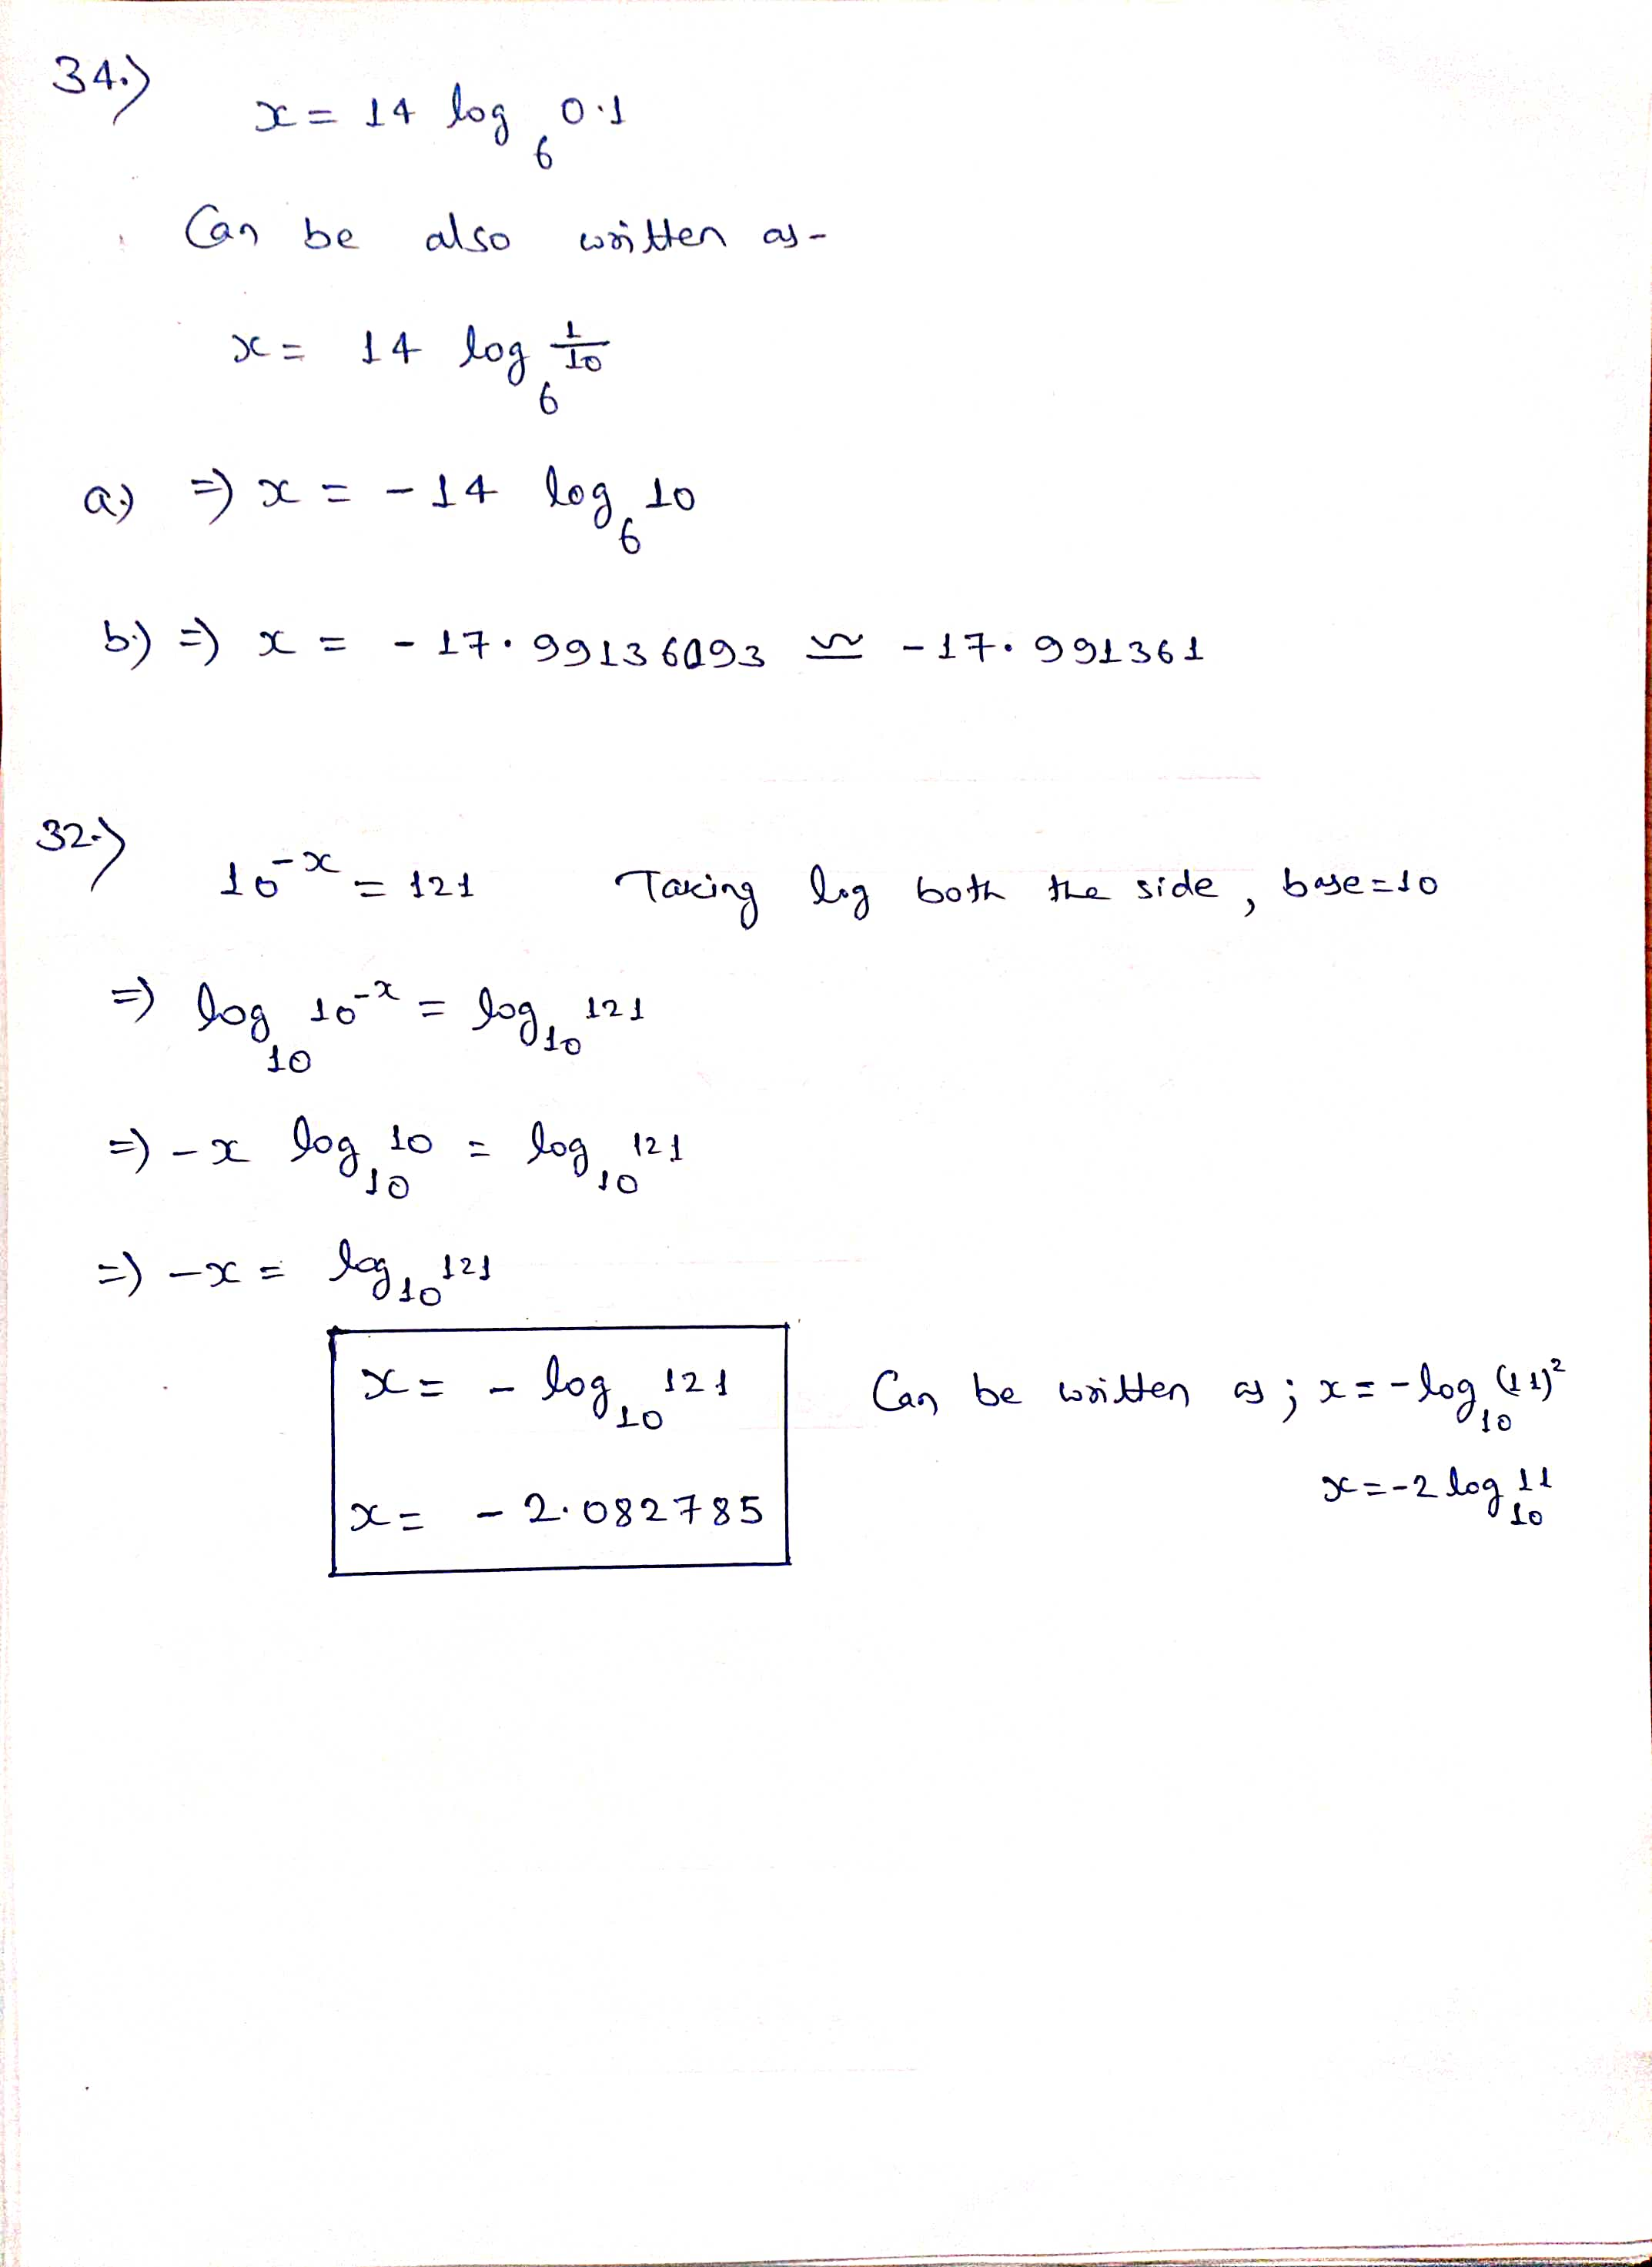 34.)
x = 14 log₆ 0.1
Can be also written as-
x = 14 log₆ 1/10
a.) => x = - 14 log₆ 10
b.) => x = - 17.99136093 ≃ - 17.991361
32.)
10⁻ˣ = 121 Taking log both the side, base=10
=> log₁₀ 10⁻ˣ = log₁₀ 121
=> -x log₁₀ 10 = log₁₀ 121
=> -x = log₁₀ 121
x = - log₁₀ 121 Can be written as; x = - log₁₀ (11)²
x = -2 log₁₀ 11
x = - 2.082785